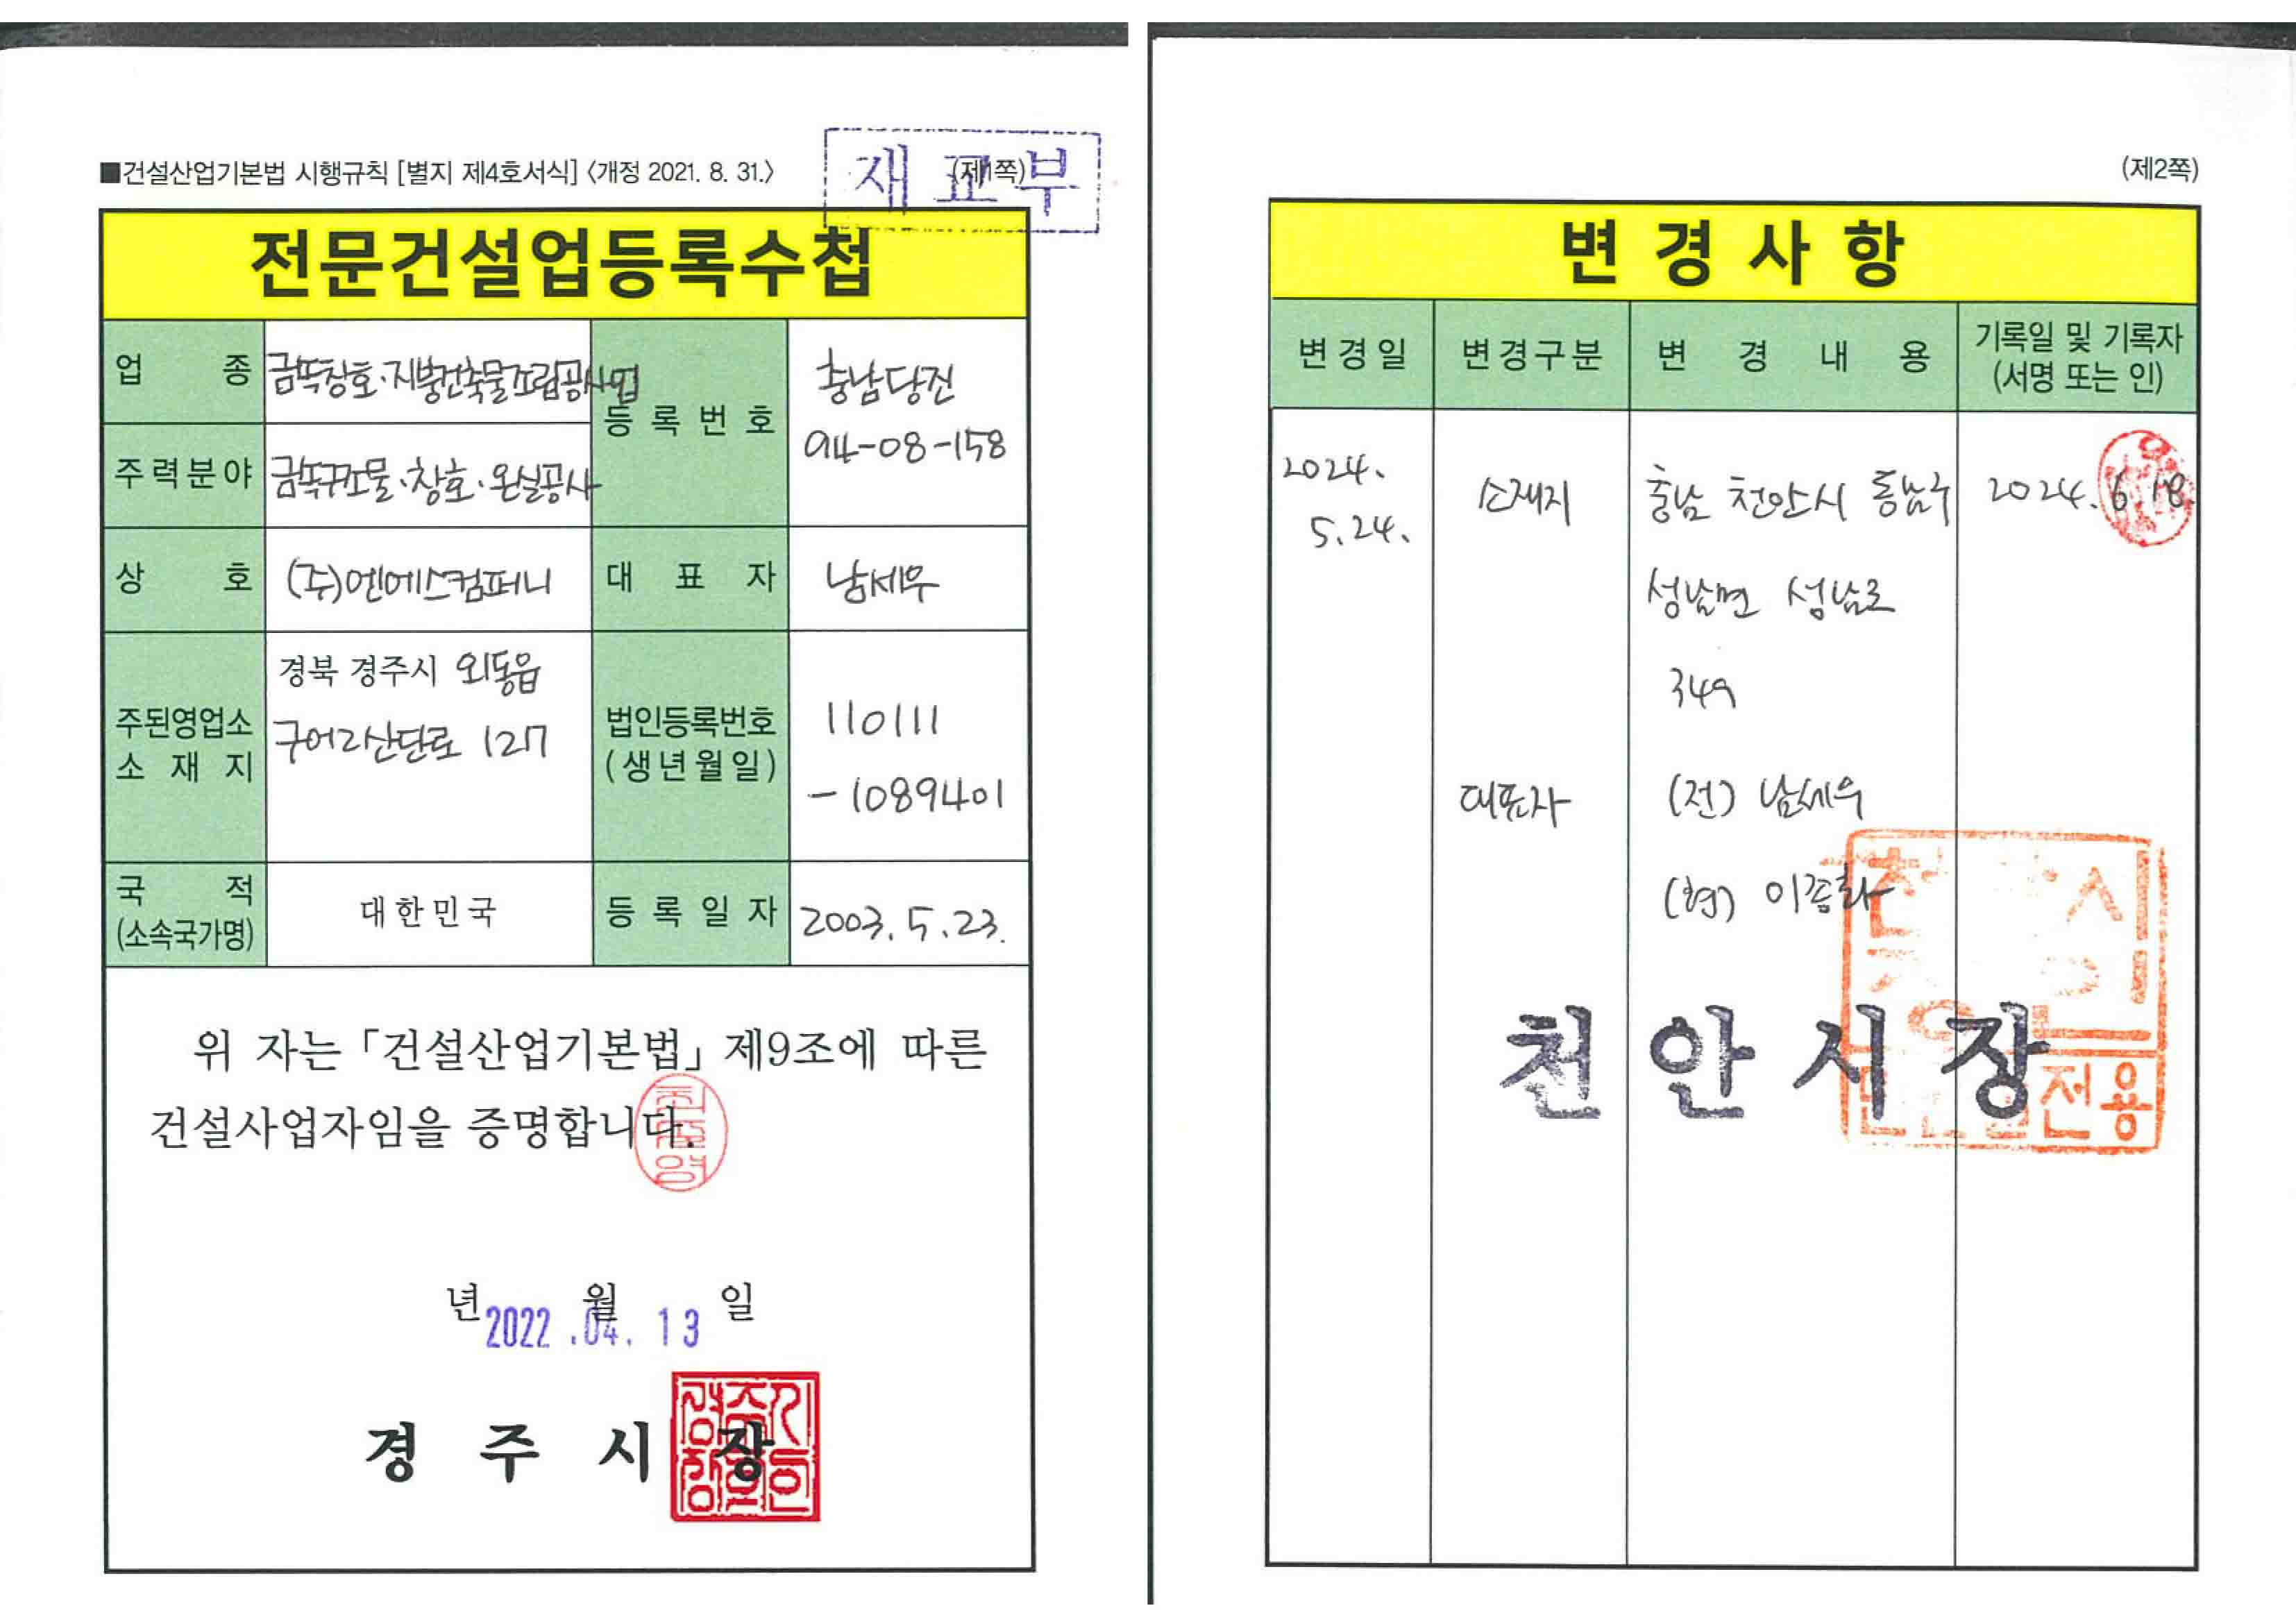 ■건설산업기본법 시행규칙 [별지 제4호서식] <개정 2021. 8. 31.>
(제1쪽)
재교부
전문건설업등록수첩
업 종
금속창호·지붕건축물조립공사업
등 록 번 호
충남당진
94-08-158
주력분야
금속구조물·창호·온실공사
상 호
(주)엔에스컴퍼니
대 표 자
남세우
주된영업소
소 재 지
경북 경주시 외동읍
구어2산단로 127
법인등록번호
(생년월일)
110111
-1089401
국 적
(소속국가명)
대한민국
등 록 일 자
2003. 5. 23.
위 자는 「건설산업기본법」 제9조에 따른
건설사업자임을 증명합니다.
년 월 일
2022 .04. 13
경 주 시 장
(제2쪽)
변 경 사 항
변경일
변경구분
변 경 내 용
기록일 및 기록자
(서명 또는 인)
2024.
5.24.
소재지
충남 천안시 동남구
성남면 성남로
349
2024. 6. 18
대표자
(전) 남세우
(현)
천 안 시 장
전용